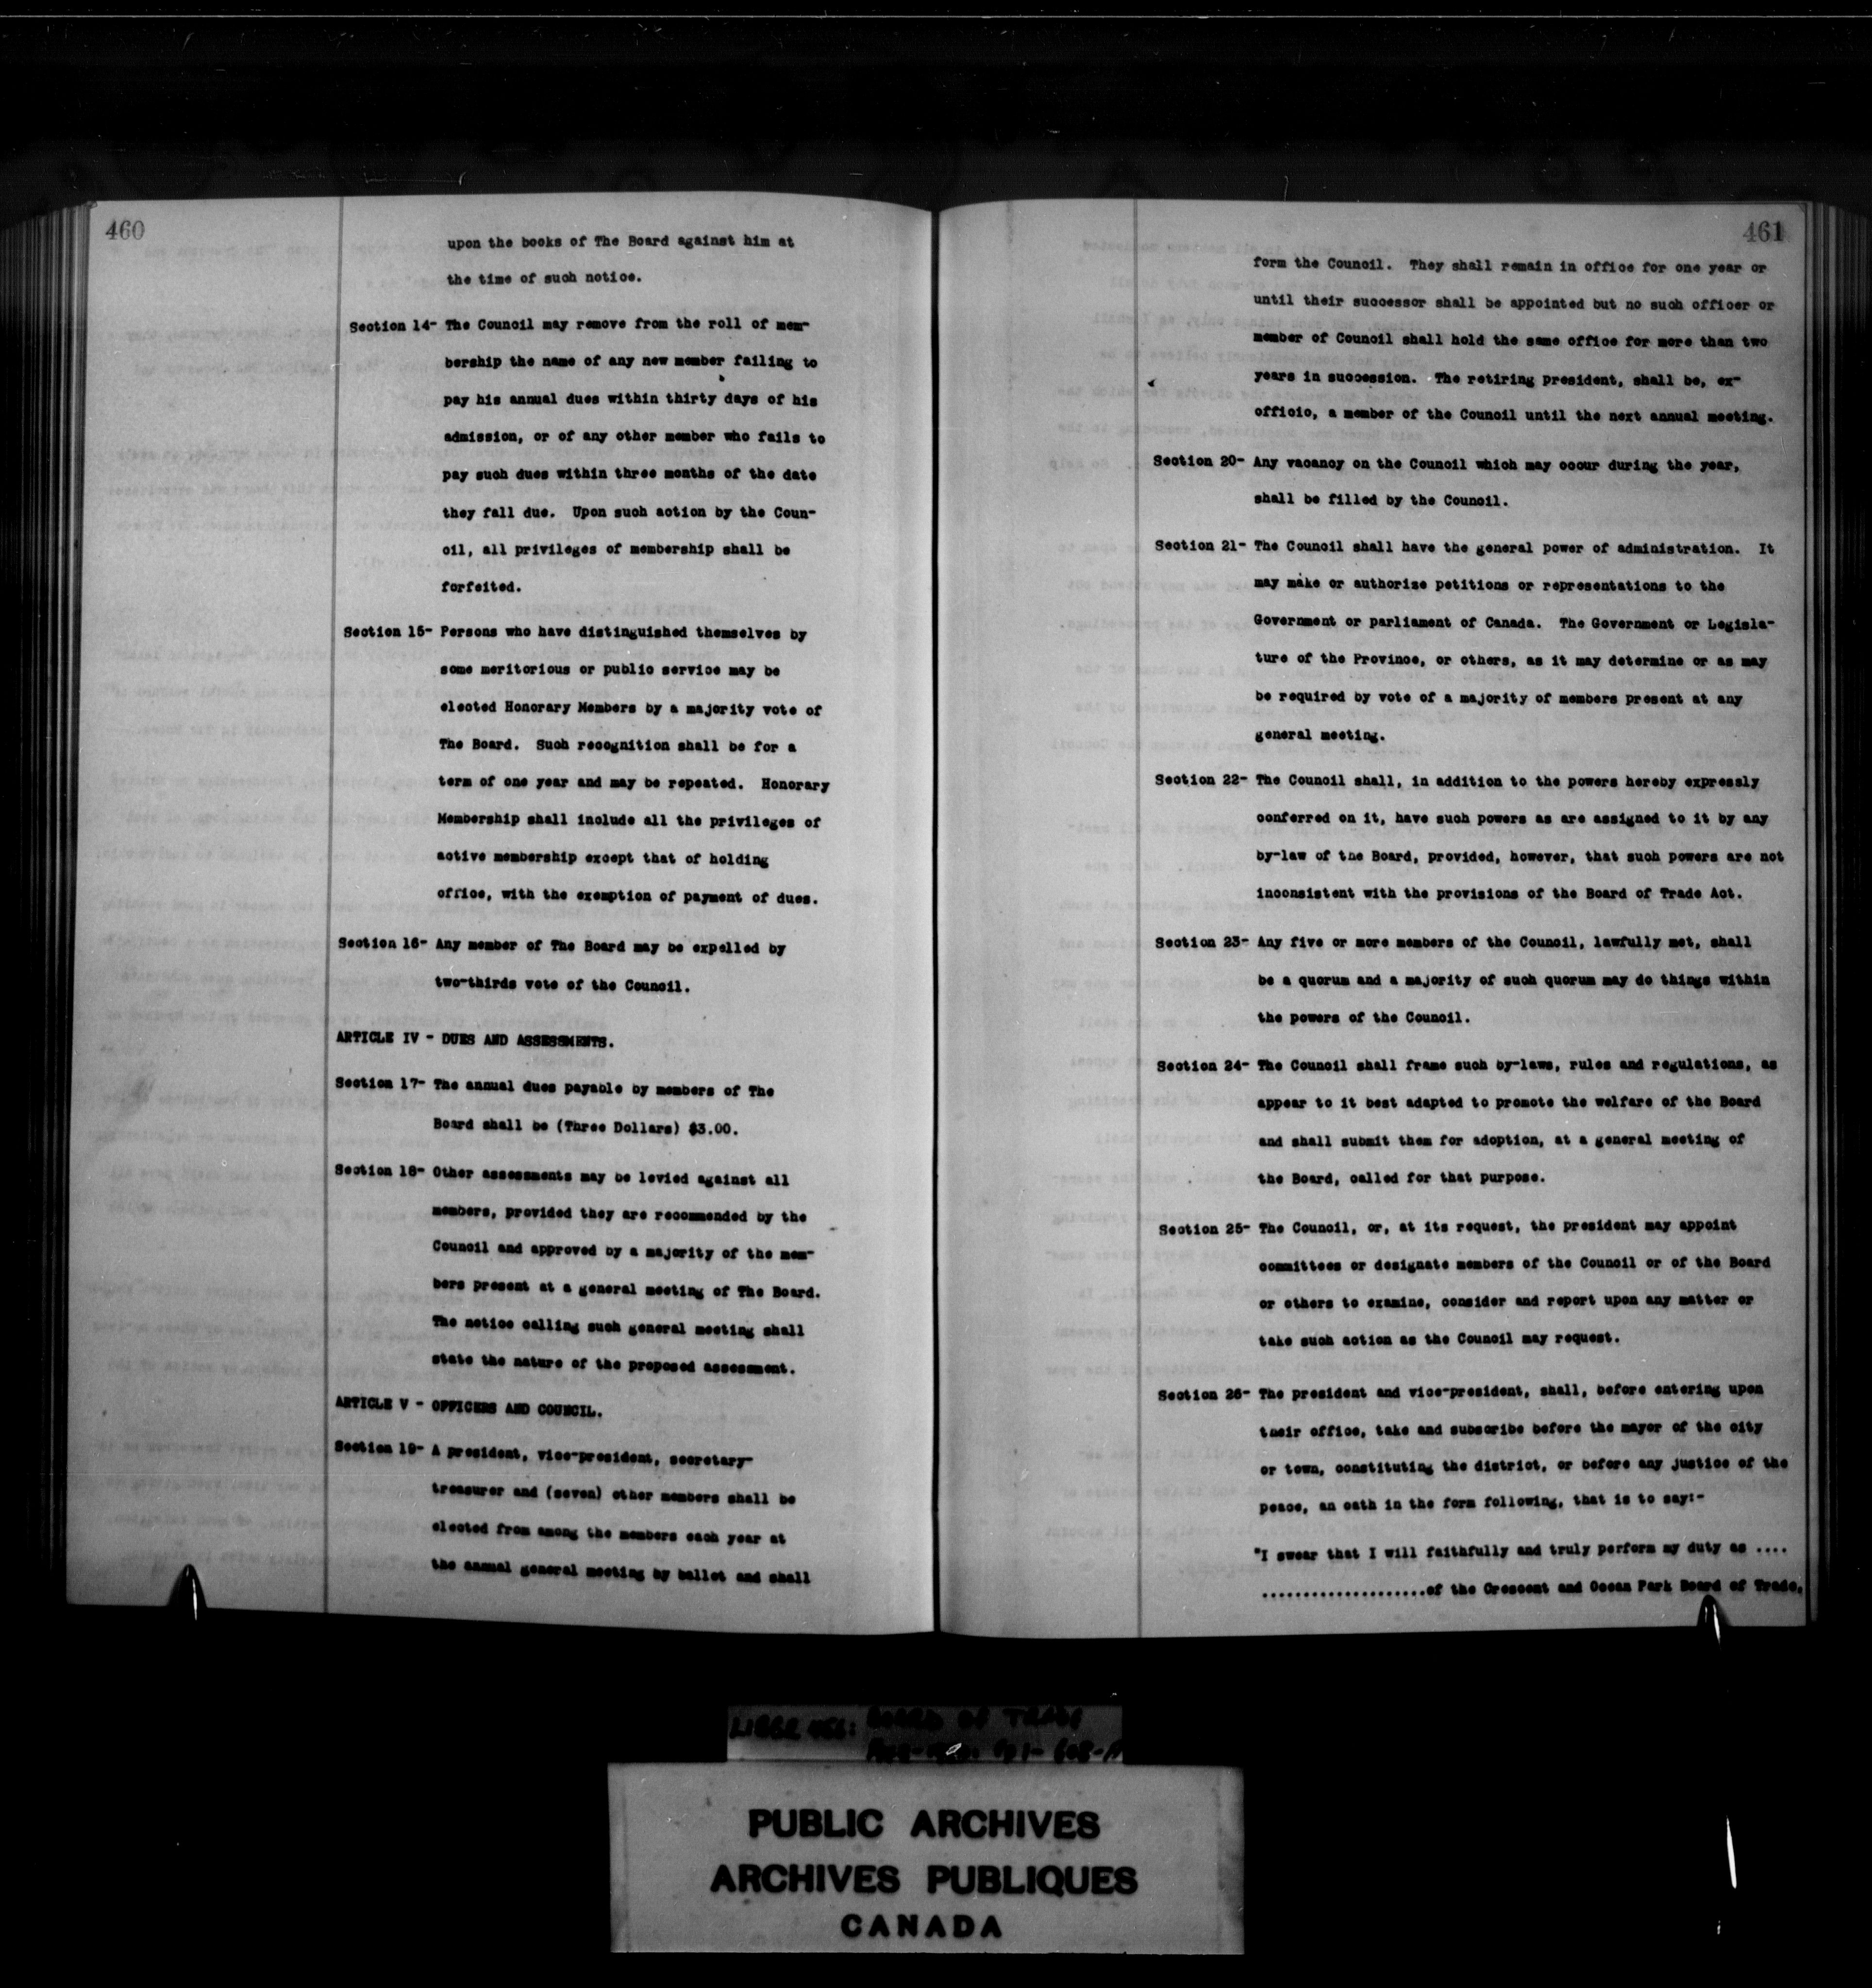 460
upon the books of The Board against him at
the time of such notice.
Section 14- The Council may remove from the roll of mem-
bership the name of any new member failing to
pay his annual dues within thirty days of his
admission, or of any other member who fails to
pay such dues within three months of the date
they fall due. Upon such action by the Coun-
cil, all privileges of membership shall be
forfeited.
Section 15- Persons who have distinguished themselves by
some meritorious or public service may be
elected Honorary Members by a majority vote of
The Board. Such recognition shall be for a
term of one year and may be repeated. Honorary
Membership shall include all the privileges of
active membership except that of holding
office, with the exemption of payment of dues.
Section 16- Any member of The Board may be expelled by
two-thirds vote of the Council.
ARTICLE IV - DUES AND ASSESSMENTS.
Section 17- The annual dues payable by members of The
Board shall be (Three Dollars) $3.00.
Section 18- Other assessments may be levied against all
members, provided they are recommended by the
Council and approved by a majority of the mem-
bers present at a general meeting of The Board.
The notice calling such general meeting shall
state the nature of the proposed assessment.
ARTICLE V - OFFICERS AND COUNCIL.
Section 19- A president, vice-president, secretary-
treasurer and (seven) other members shall be
elected from among the members each year at
the annual general meeting by ballot and shall
461
form the Council. They shall remain in office for one year or
until their successor shall be appointed but no such officer or
member of Council shall hold the same office for more than two
years in succession. The retiring president, shall be, ex-
officio, a member of the Council until the next annual meeting.
Section 20- Any vacancy on the Council which may occur during the year,
shall be filled by the Council.
Section 21- The Council shall have the general power of administration. It
may make or authorize petitions or representations to the
Government or parliament of Canada. The Government or Legisla-
ture of the Province, or others, as it may determine or as may
be required by vote of a majority of members present at any
general meeting.
Section 22- The Council shall, in addition to the powers hereby expressly
conferred on it, have such powers as are assigned to it by any
by-law of the Board, provided, however, that such powers are not
inconsistent with the provisions of the Board of Trade Act.
Section 23- Any five or more members of the Council, lawfully met, shall
be a quorum and a majority of such quorum may do things within
the powers of the Council.
Section 24- The Council shall frame such by-laws, rules and regulations, as
appear to it best adapted to promote the welfare of the Board
and shall submit them for adoption, at a general meeting of
the Board, called for that purpose.
Section 25- The Council, or, at its request, the president may appoint
committees or designate members of the Council or of the Board
or others to examine, consider and report upon any matter or
take such action as the Council may request.
Section 26- The president and vice-president, shall, before entering upon
their office, take and subscribe before the mayor of the city
or town, constituting the district, or before any justice of the
peace, an oath in the form following, that is to say:-
"I swear that I will faithfully and truly perform my duty as ....
....................of the Crescent and Ocean Park Board of Trade,
BOARD OF TRADE
PUBLIC ARCHIVES
ARCHIVES PUBLIQUES
CANADA